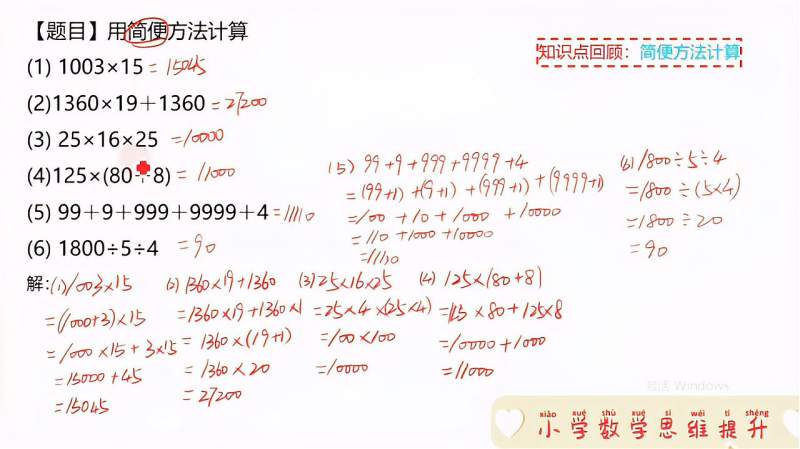 【题目】用简便方法计算
知识点回顾：简便方法计算
(1) 1003×15=15045
(2)1360×19+1360=27200
(3) 25×16×25=10000
(4)125×(80+8)=11000
(5) 99+9+999+9999+4=11110
(6) 1800÷5÷4=90
(5) 99+9+999+9999+4
=(99+1)+(9+1)+(999+1)+(9999+1)
=100+10+1000+10000
=110+1000+10000
=11110
(6)1800÷5÷4
=1800÷(5×4)
=1800÷20
=90
解:(1)1003×15
=(1000+3)×15
=1000×15+3×15
=15000+45
=15045
(2)1360×19+1360
=1360×19+1360×1
=1360×(19+1)
=1360×20
=27200
(3)25×16×25
=25×4×(25×4)
=100×100
=10000
(4) 125×(80+8)
=125×80+125×8
=10000+1000
=11000
激活 Windows
xiǎo xué shù xué sī wéi tí shēng
小学数学思维提升